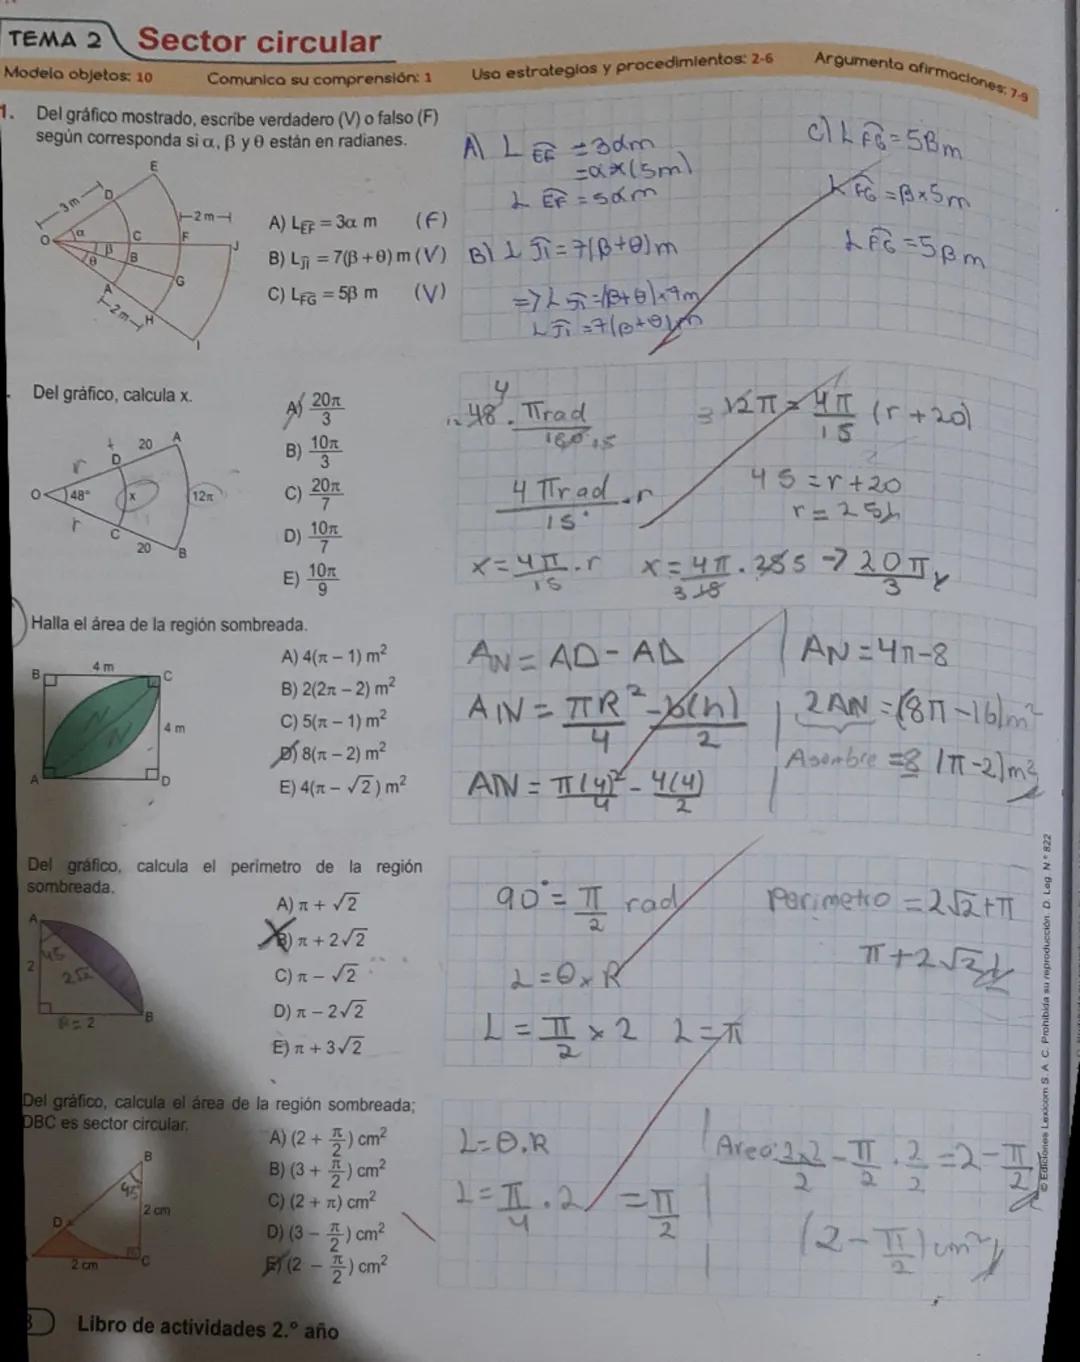 TEMA 2 Sector circular
Modela objetos: 10 Comunica su comprensión: 1 Usa estrategias y procedimientos: 2-6 Argumenta afirmaciones: 7-9
1. Del gráfico mostrado, escribe verdadero (V) o falso (F)
según corresponda si α, β y θ están en radianes.
E
3 m D
2 m
O α C F J
β B
θ G
A
2 m H
I
A) L_EF = 3α m (F)
B) L_JI = 7(β + θ) m (V)
C) L_FG = 5β m (V)
A) L EF = 3αm
= α x (5m)
L EF = 5αm
B) L JI = 7(β+θ)m
=> L JI = (β+θ) x 7m
L JI = 7(β+θ)m
C) L FG = 5βm
L FG = β x 5m
L FG = 5βm
Del gráfico, calcula x.
20 A
r D
O 48° x 12π
r C
20 B
A) 20π/3
B) 10π/3
C) 20π/7
D) 10π/7
E) 10π/9
48 . πrad/180 15
4πrad/15 . r
x = 4π/15 . r
3 12π = 4π/15 (r + 20)
45 = r + 20
r = 25
x = 4π/15 . 25 5 → 20π/3
Halla el área de la región sombreada.
B 4 m C
4 m
A D
A) 4(π − 1) m²
B) 2(2π − 2) m²
C) 5(π − 1) m²
D) 8(π − 2) m²
E) 4(π − √2) m²
AN = πR²/4 − b(h)/2
AN = π(4)²/4 − 4(4)/2
AN = 4π−8
2AN = (8π−16)m²
Asombre = 8 (π−2)m²
Del gráfico, calcula el perímetro de la región
sombreada.
A
45
2 2√2
R = 2 B
A) π + √2
B) π + 2√2
C) π − √2
D) π − 2√2
E) π + 3√2
90° = π/2 rad
L = θ x R
L = π/2 x 2 L = π
Perimetro = 2√2+π
π + 2√2
Del gráfico, calcula el área de la región sombreada;
DBC es sector circular.
B
45
2 cm
D
2 cm C
A) (2 + π/2) cm²
B) (3 + π/2) cm²
C) (2 + π) cm²
D) (3 − π/2) cm²
E) (2 − π/2) cm²
L = θ.R
L = π/4 . 2 = π/2
Area: 2x2/2 − π/2 . 2/2 = 2 − π/2
(2 − π/2) cm²
© Ediciones Lexicom S. A. C. Prohibida su reproducción. D. Leg. N.° 822
Libro de actividades 2.° año